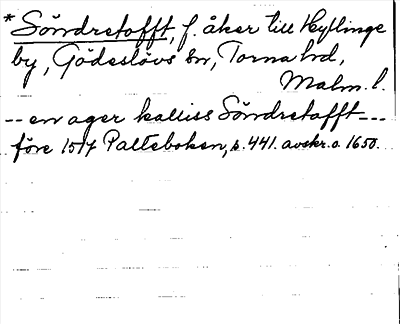 * Söndretofft, f. åker till Hyllinge
by, Gödeslövs sn, Torna hd,
Malm. l.
-- en ager kalliss Söndretofft ---
före 1517 Palteboken, s. 441. avskr. o. 1650.